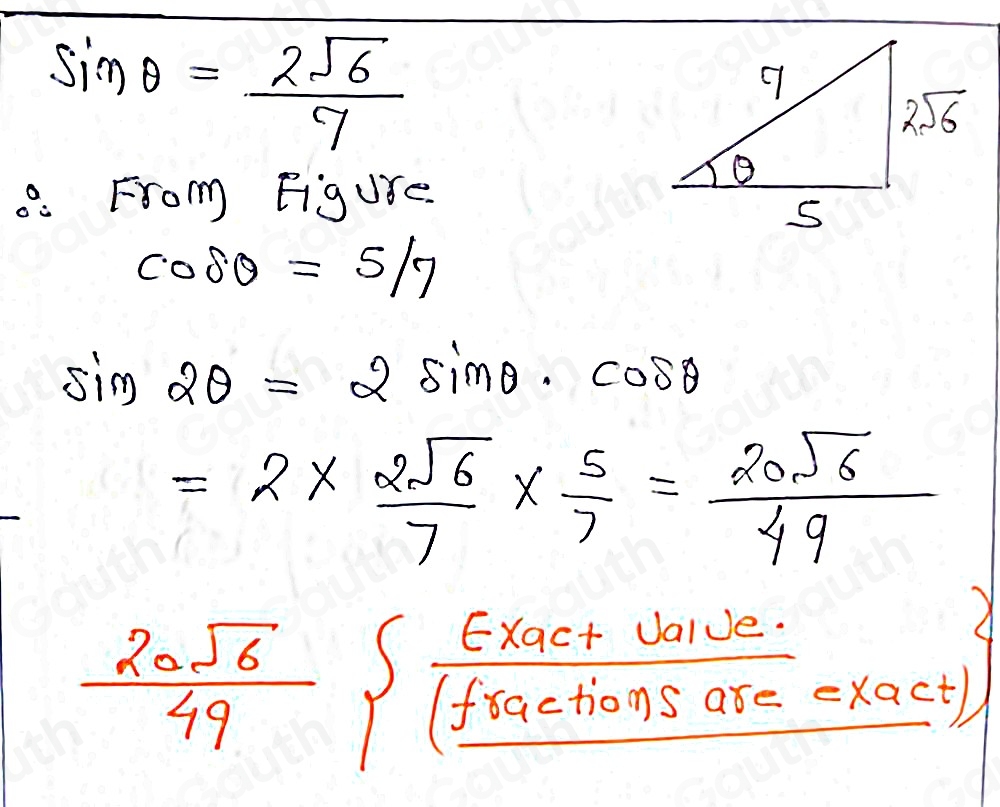 sin θ = 2√6/7
7
2√6
θ
5
∴ From Figure
cosθ = 5/7
sin 2θ = 2 sinθ . cosθ
= 2 × 2√6/7 × 5/7 = 20√6/49
20√6/49 { Exact value.
(fractions are exact) }
Gauth